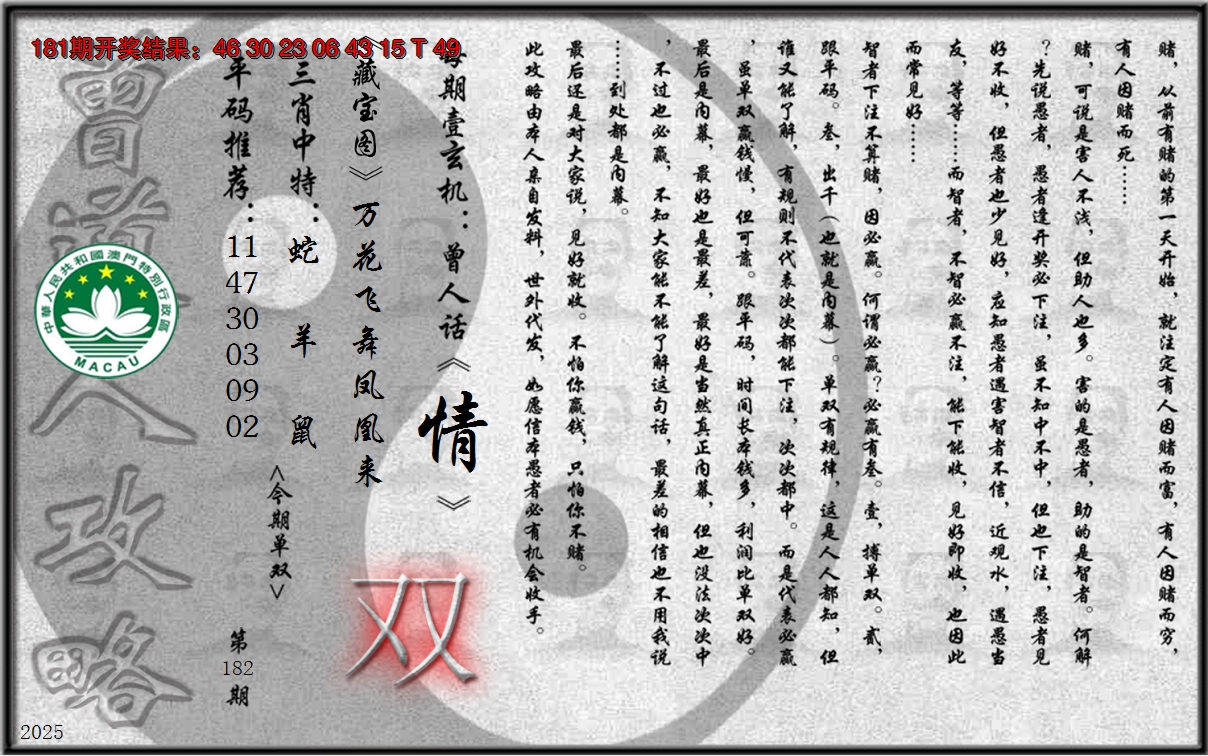 181期开奖结果：46 30 23 06 43 15 T 49
赌，从前有赌的第一天开始，就注定有人因赌而富，有人因赌而穷，
有人因赌而死……
赌，可说是害人不浅，但助人也多。害的是愚者，助的是智者。何解
？先说愚者，愚者逢开奖必下注，虽不知中不中，但也下注，愚者见
好不收，但愚者也少见好，应知愚者遇害智者不信，近观水，遇愚当
友，等等……而智者，不智必赢不注，能下能收，见好即收，也因此
而常见好……
智者下注不算赌，因必赢。何谓必赢？必赢有叁。壹，搏单双。贰，
跟平码。叁，出千（也就是内幕）。单双有规律，这是人人都知，但
谁又能了解，有规则不代表次次都能下注，次次都中。而是代表必赢
，虽单双赢钱慢，但可靠。跟平码，时间长本钱多，利润比单双好。
最后是内幕，最好也是最差，最好是当然真正内幕，但也没法次次中
，不过也必赢，不知大家能不能了解这句话，最差的相信也不用我说
……到处都是内幕。
最后还是对大家说，见好就收。不怕你赢钱，只怕你不赌。
此攻略由本人亲自发料，世外代发，如愿信本愚者必有机会收手。
每期壹玄机：曾人话《情》
《藏宝图》万花飞舞凤凰来
三肖中特：蛇 羊 鼠
平码推荐：11 47 30 03 09 02
<今期单双>
双
第182期
曾道人攻略
中華人民共和國澳門特別行政區
MACAU
2025